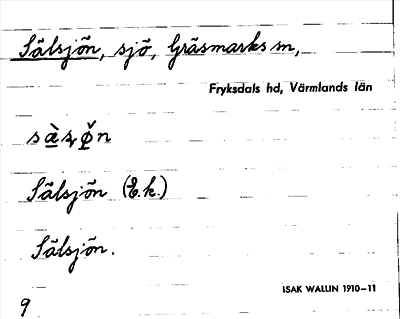 Sälsjön, sjö, Gräsmarks sn,
Fryksdals hd, Värmlands län
Sälsjön (E.k.)
Sälsjön.
ISAK WALLIN 1910–11
9